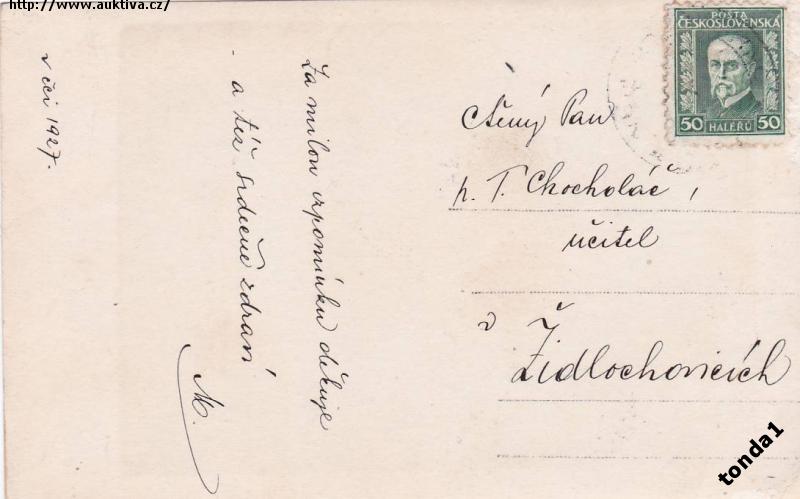 http://www.auktiva.cz/
v čci 1927.
Za milou vzpomínku děkuje
a též srdečně zdraví
M.
POŠTA
ČESKOSLOVENSKÁ
50 HALÉŘŮ 50
Ctěný Pan
p. T. Chocholáč,
učitel
v Židlochovicích
tonda1